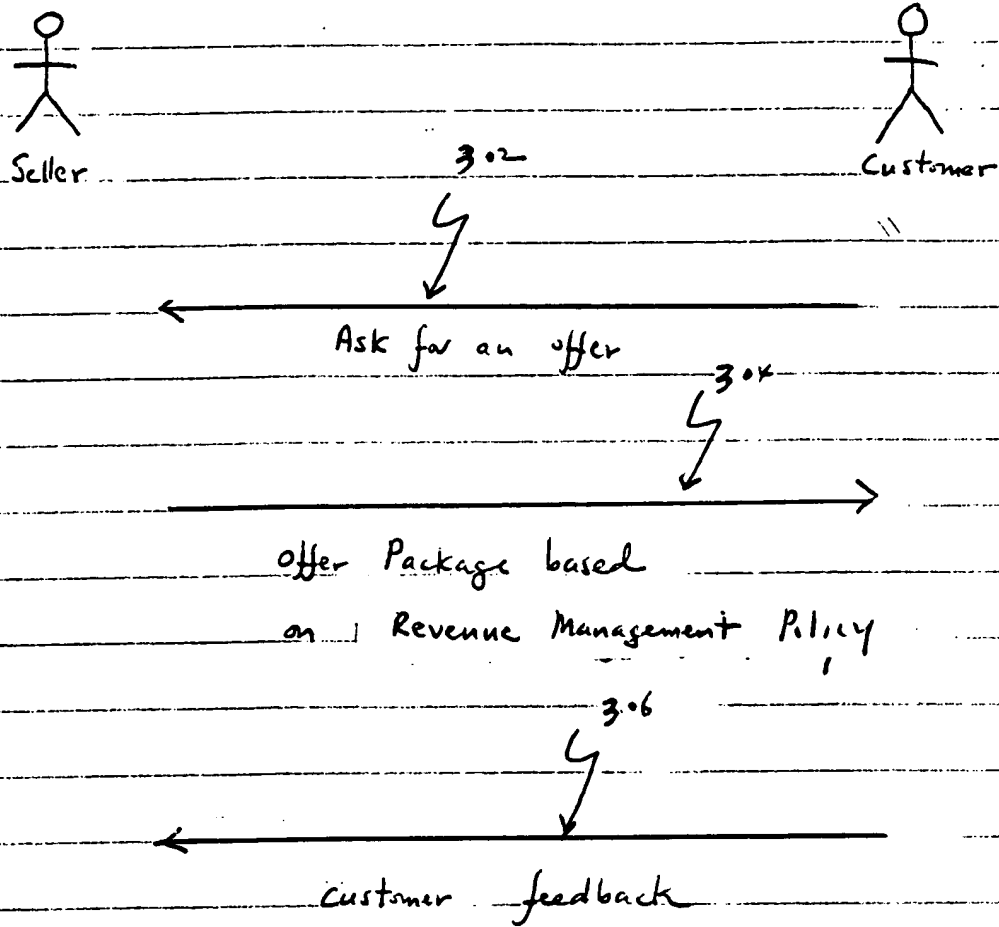 Seller
Customer
3.02
Ask for an offer
3.04
offer Package based
on Revenue Management Policy
3.06
customer feedback